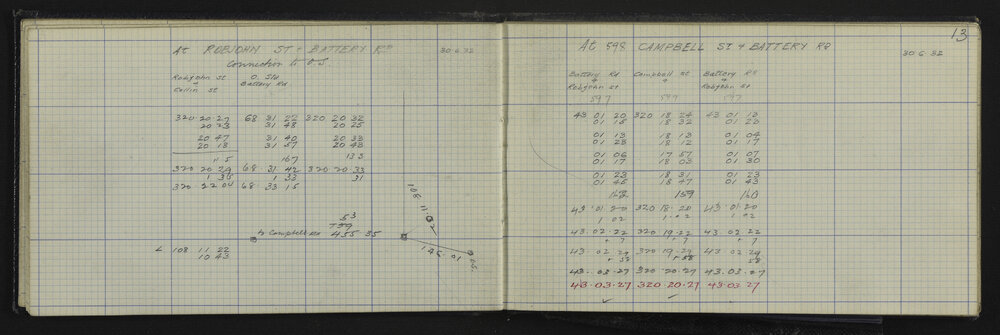 At ROBJOHN ST & BATTERY RD 30.6.32
Connection to O.S.
Robjohn St O. Std
Collin St Battery Rd
320 20 27 68 31 22 320 20 32
20 23 31 48 20 25
20 47 31 40 20 33
20 18 31 57 20 43
115 167 133
320 20 29 68 31 42 320 20 33
1 35 1 33 31
320 22 04 68 33 15
53
to Campbell Rd 455 35
L 108 11 22
10 43
108 11 02
145.01
O.S.
13
At 598 CAMPBELL ST & BATTERY RD 30 6 32
Battery Rd Campbell St Battery Rd
Robjohn St Robjohn St
597 599 597
43 01 20 320 18 24 43 01 13
01 15 18 32 01 23
01 13 18 13 01 04
01 23 18 12 01 17
01 06 17 57 01 07
01 17 18 03 01 30
01 23 18 31 01 23
01 45 18 47 01 43
162 159 160
43.01.20 320 18.20 43.01.20
1 02 1.02 1.02
43.02.22 320 19.22 43.02.22
+ 7 + 7 + 7
43.02.29 320 19.29 43.02.29
+ 58 + 58 58
43.03.27 320 20.27 43.03.27
43.03.27 320 20.27 43.03 27